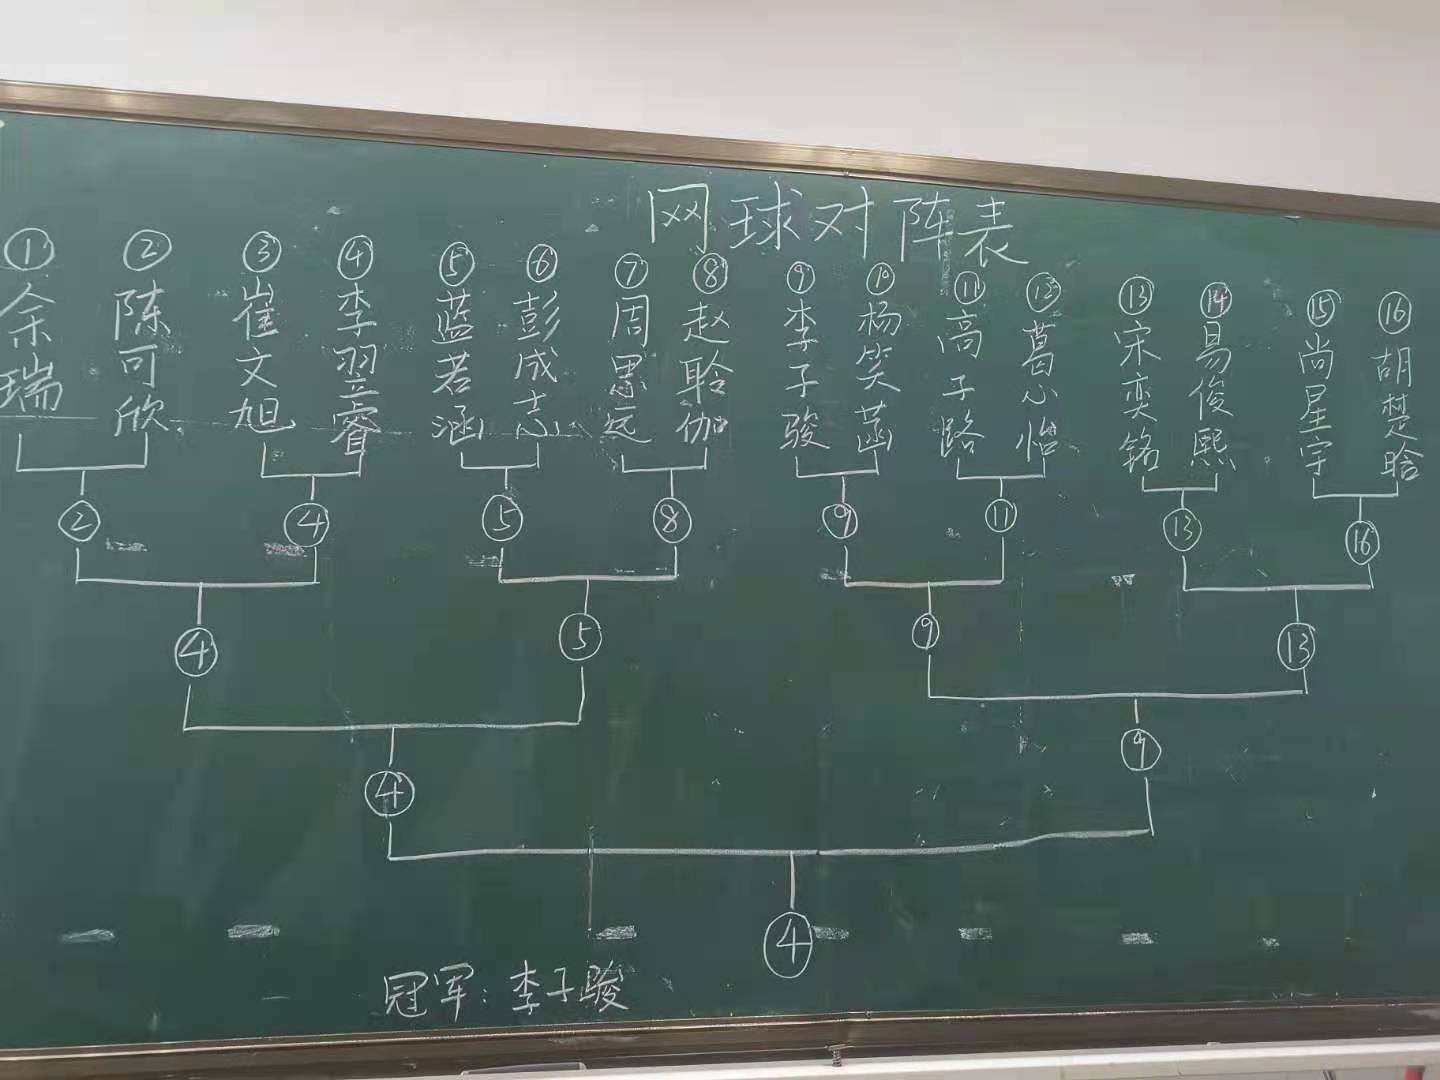 网球对阵表
① ② ③ ④ ⑤ ⑥ ⑦ ⑧ ⑨ ⑩ ⑪ ⑫ ⑬ ⑭ ⑮ ⑯
余瑞
陈可欣
崔文旭
李翌睿
蓝若涵
彭成志
周思远
赵聆伽
李子骏
杨笑菡
高子路
葛心怡
宋奕铭
易俊熙
尚星宇
胡楚晗
② ④ ⑤ ⑧ ⑨ ⑪ ⑬ ⑯
④ ⑤ ⑨ ⑬
④ ⑨
④
冠军:李子骏